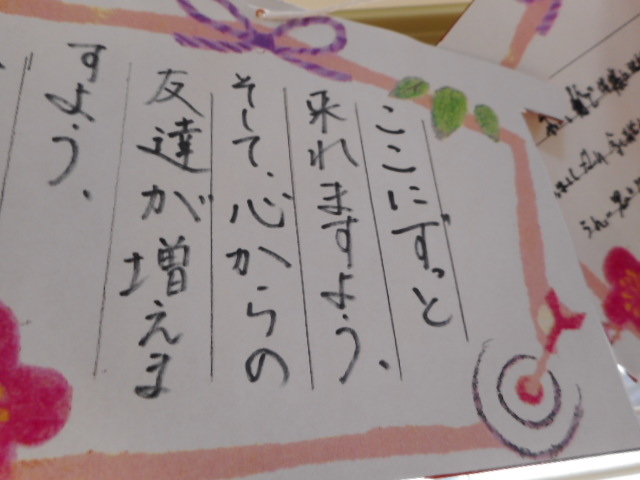 ここにずっと
来れますよう、
そして、心からの
友達が増えま
すよう、